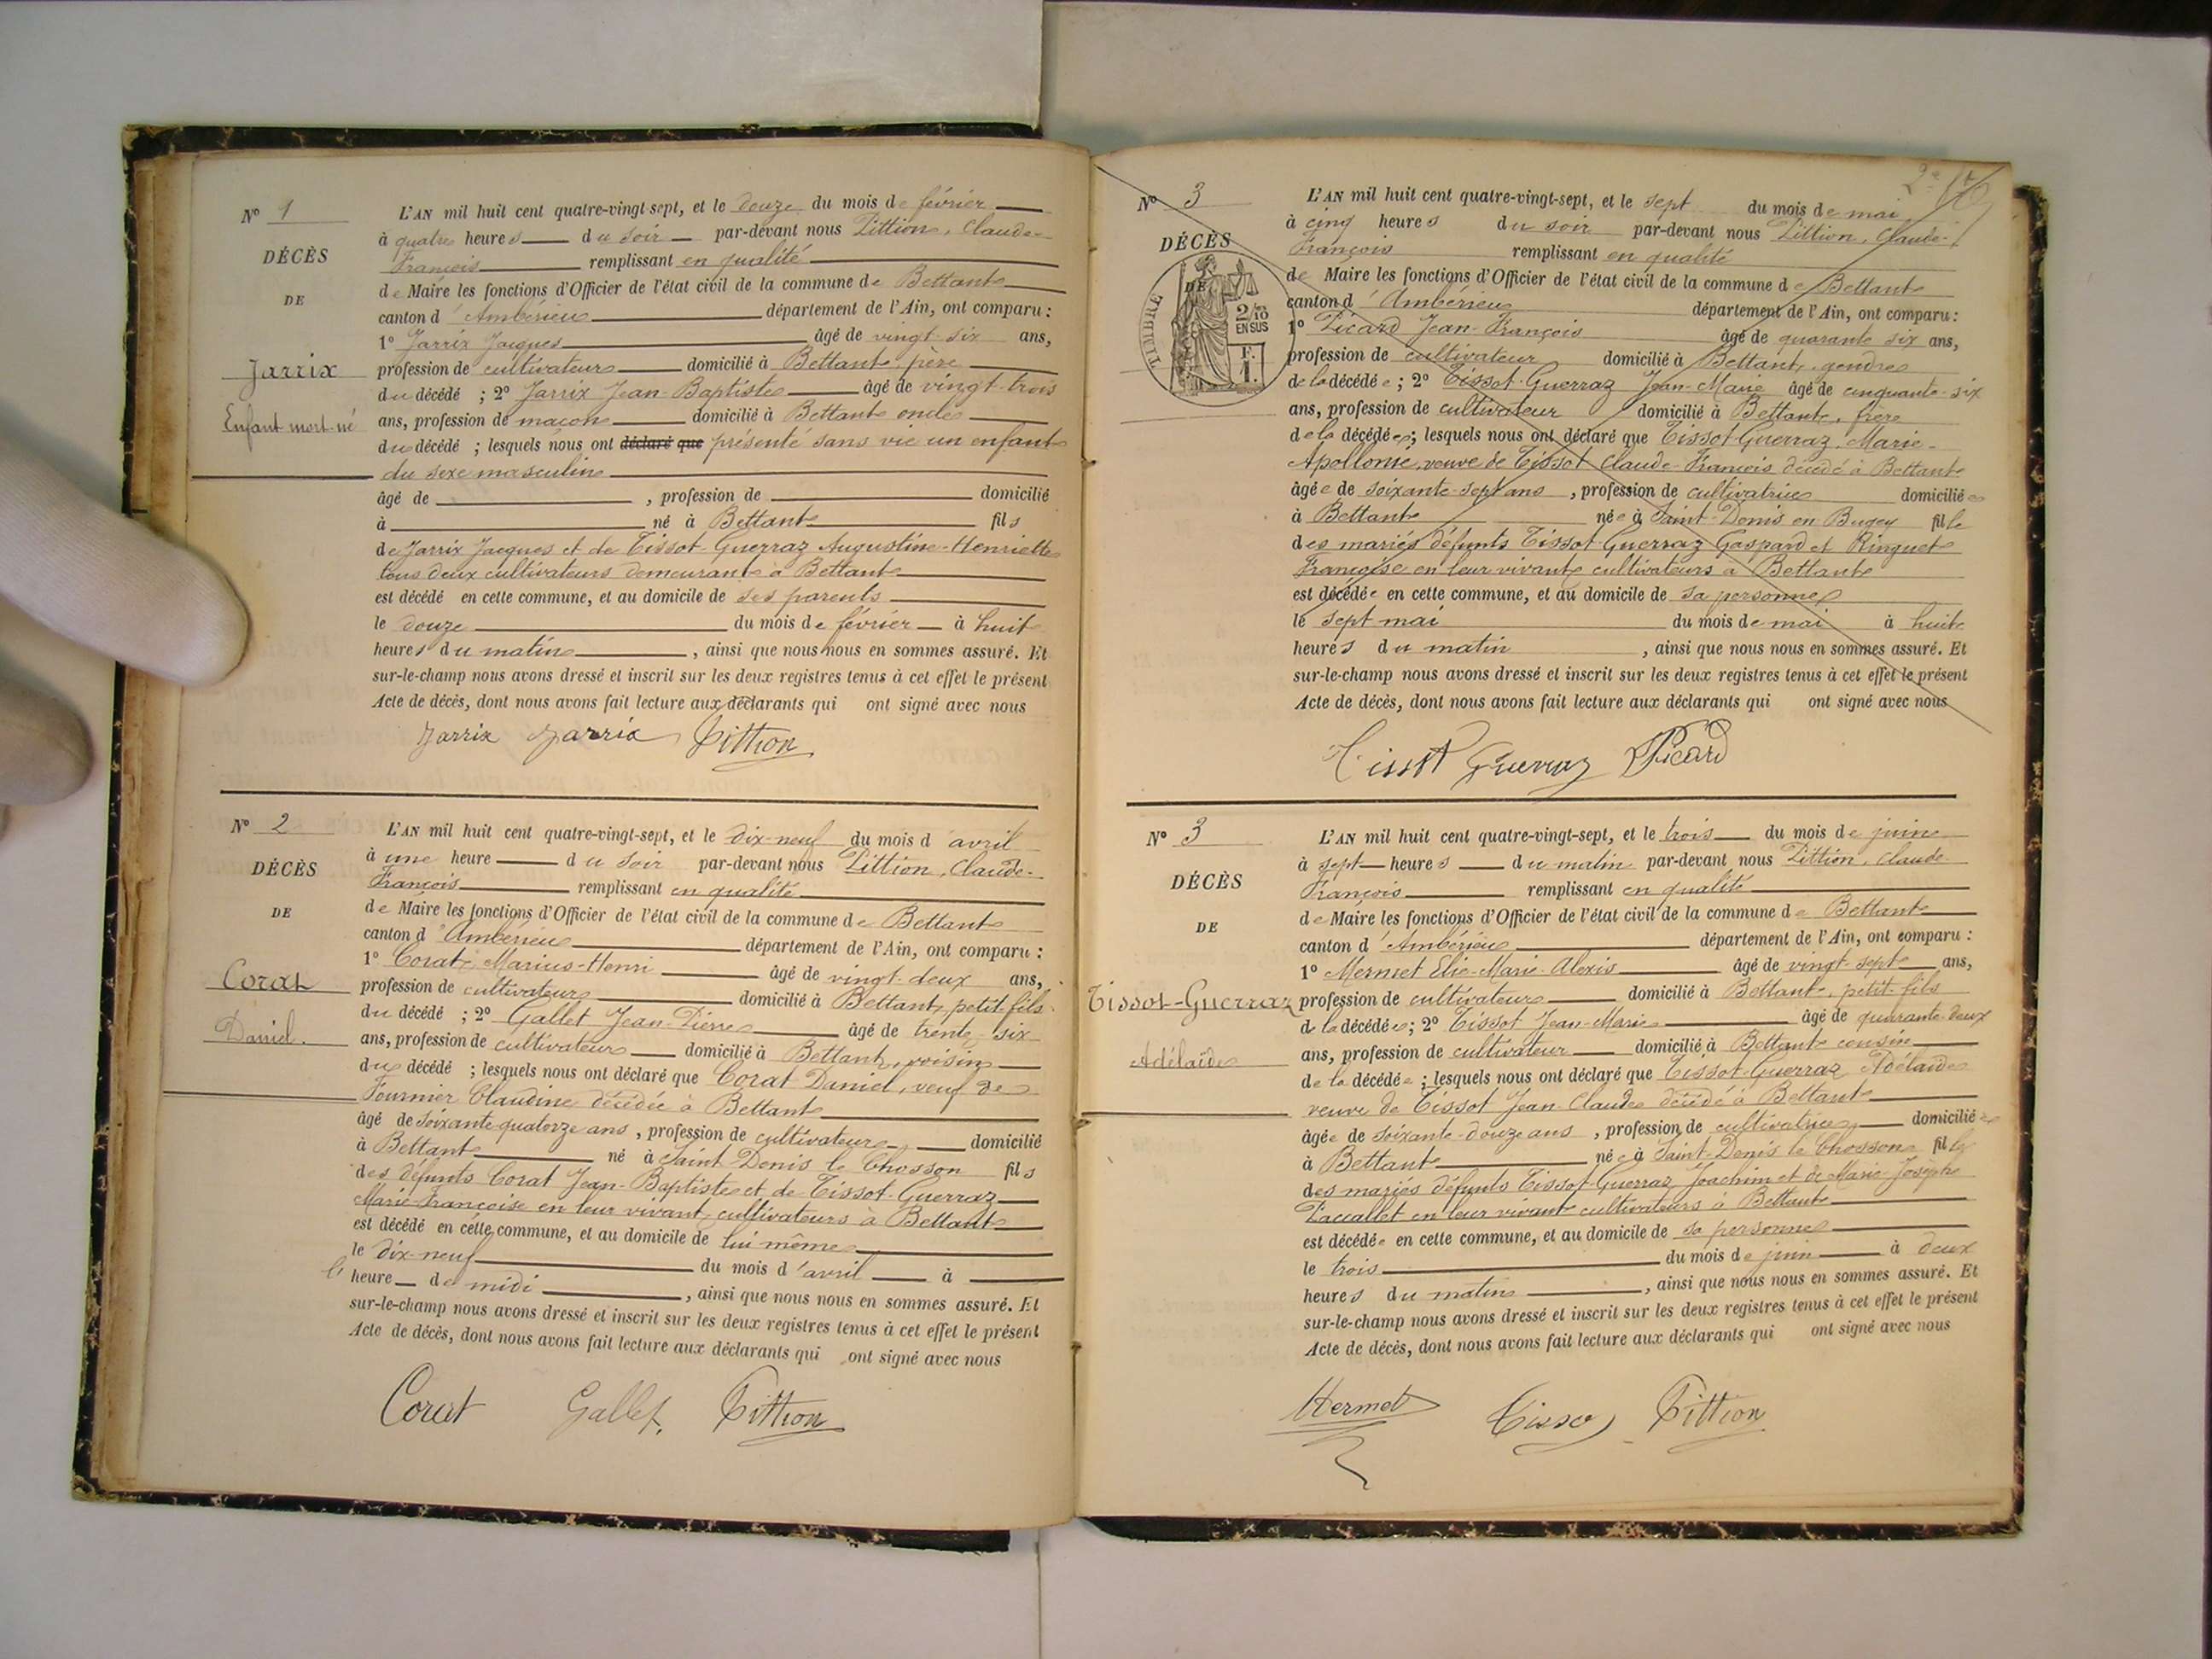 N° 1
DÉCÈS
DE
Jarrix
Enfant mort-né
L'AN mil huit cent quatre-vingt sept, et le douze du mois de février
à quatre heures du soir par-devant nous Pittion, Claude-
François remplissant en qualité
de Maire les fonctions d'Officier de l'état civil de la commune de Bettant
canton d'Ambérieu département de l'Ain, ont comparu :
1° Jarrix Jacques âgé de vingt-six ans,
profession de cultivateur domicilié à Bettant, père
du décédé ; 2° Jarrix Jean-Baptiste âgé de vingt-trois
ans, profession de maçon domicilié à Bettant oncle
du décédé ; lesquels nous ont déclaré que présenté sans vie un enfant
du sexe masculin
âgé de , profession de domicilié
à né à Bettant fils
de Jarrix Jacques et de Tissot-Guerraz Augustine-Henriette
tous deux cultivateurs demeurant à Bettant
est décédé en cette commune, et au domicile de ses parents
le douze du mois de février à huit
heures du matin , ainsi que nous nous en sommes assuré. Et
sur-le-champ nous avons dressé et inscrit sur les deux registres tenus à cet effet le présent
Acte de décès, dont nous avons fait lecture aux déclarants qui ont signé avec nous
Jarrix Jarrix Pittion
N° 2
DÉCÈS
DE
Corat
Daniel.
L'AN mil huit cent quatre-vingt-sept, et le dix-neuf du mois d'avril
à une heure du soir par-devant nous Pittion, Claude-
François remplissant en qualité
de Maire les fonctions d'Officier de l'état civil de la commune de Bettant
canton d'Ambérieu département de l'Ain, ont comparu :
1° Corat Marius-Henri âgé de vingt-deux ans,
profession de cultivateur domicilié à Bettant, petit-fils
du décédé ; 2° Gallet Jean-Pierre âgé de trente-six
ans, profession de cultivateur domicilié à Bettant, voisin
du décédé ; lesquels nous ont déclaré que Corat Daniel, veuf de
Fournier Claudine décédée à Bettant
âgé de soixante-quatorze ans , profession de cultivateur domicilié
à Bettant né à Saint Denis le Chosson fils
des défunts Corat Jean-Baptiste et de Tissot-Guerraz
Marie-Françoise en leur vivant cultivateurs à Bettant
est décédé en cette commune, et au domicile de lui même
le dix-neuf du mois d'avril à
l'heure de midi , ainsi que nous nous en sommes assuré. Et
sur-le-champ nous avons dressé et inscrit sur les deux registres tenus à cet effet le présent
Acte de décès, dont nous avons fait lecture aux déclarants qui ont signé avec nous
Corat Gallet. Pittion
N° 3
DÉCÈS
DE
TIMBRE
2/10
EN SUS
F.
1.
L'AN mil huit cent quatre-vingt-sept, et le sept du mois de mai
à cinq heures du soir par-devant nous Pittion, Claude-
François remplissant en qualité
de Maire les fonctions d'Officier de l'état civil de la commune de Bettant
canton d'Ambérieu département de l'Ain, ont comparu :
1° Picard Jean-François âgé de quarante six ans,
profession de cultivateur domicilié à Bettant, gendre
de la décédée ; 2° Tissot-Guerraz Jean-Marie âgé de cinquante-six
ans, profession de cultivateur domicilié à Bettant, frère
de la décédée ; lesquels nous ont déclaré que Tissot-Guerraz Marie-
Apollonie, veuve de Tissot Claude-François décédé à Bettant
âgée de soixante-sept ans , profession de cultivatrice domiciliée
à Bettant née à Saint-Denis en Bugey fille
des mariés défunts Tissot-Guerraz Gaspard et Ringuet
Françoise en leur vivant cultivateurs à Bettant
est décédée en cette commune, et au domicile de sa personne
le sept mai du mois de mai à huit
heures du matin , ainsi que nous nous en sommes assuré. Et
sur-le-champ nous avons dressé et inscrit sur les deux registres tenus à cet effet le présent
Acte de décès, dont nous avons fait lecture aux déclarants qui ont signé avec nous
Tissot Guerraz Picard
N° 3
DÉCÈS
DE
Tissot-Guerraz
Adélaïde
L'AN mil huit cent quatre-vingt-sept, et le trois du mois de juin
à sept heures du matin par-devant nous Pittion, Claude-
François remplissant en qualité
de Maire les fonctions d'Officier de l'état civil de la commune de Bettant
canton d'Ambérieu département de l'Ain, ont comparu :
1° Mermet Elie-Marie-Alexis âgé de vingt-sept ans,
profession de cultivateur domicilié à Bettant, petit-fils
de la décédée ; 2° Tissot Jean-Marie âgé de quarante-deux
ans, profession de cultivateur domicilié à Bettant cousin
de la décédée ; lesquels nous ont déclaré que Tissot-Guerraz Adélaïde
veuve de Tissot Jean-Claude décédé à Bettant
âgée de soixante-douze ans , profession de cultivatrice domiciliée
à Bettant née à Saint-Denis le Chosson fille
des mariés défunts Tissot-Guerraz Joachim et de Marie-Josèphe
Paccallet en leur vivant cultivateurs à Bettant
est décédée en cette commune, et au domicile de sa personne
le trois du mois de juin à deux
heures du matin , ainsi que nous nous en sommes assuré. Et
sur-le-champ nous avons dressé et inscrit sur les deux registres tenus à cet effet le présent
Acte de décès, dont nous avons fait lecture aux déclarants qui ont signé avec nous
Mermet Tissot Pittion